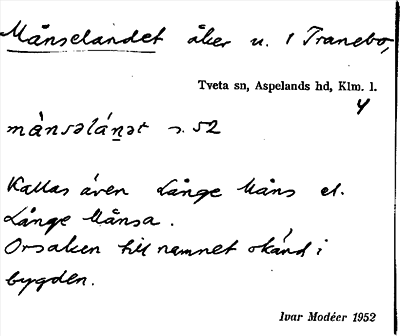 Månselandet åker u. 1 Tranebo,
Tveta sn, Aspelands hd, Klm. l.
4
månsəláṉət s. 52
Kallas även Långe Måns el.
Långe Månsa.
Orsaken till namnet okänd i
bygden.
Ivar Modéer 1952